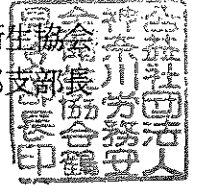 生協会
支部長
公益社団法人
神奈川労務安
全衛生協会鶴
見支部長印